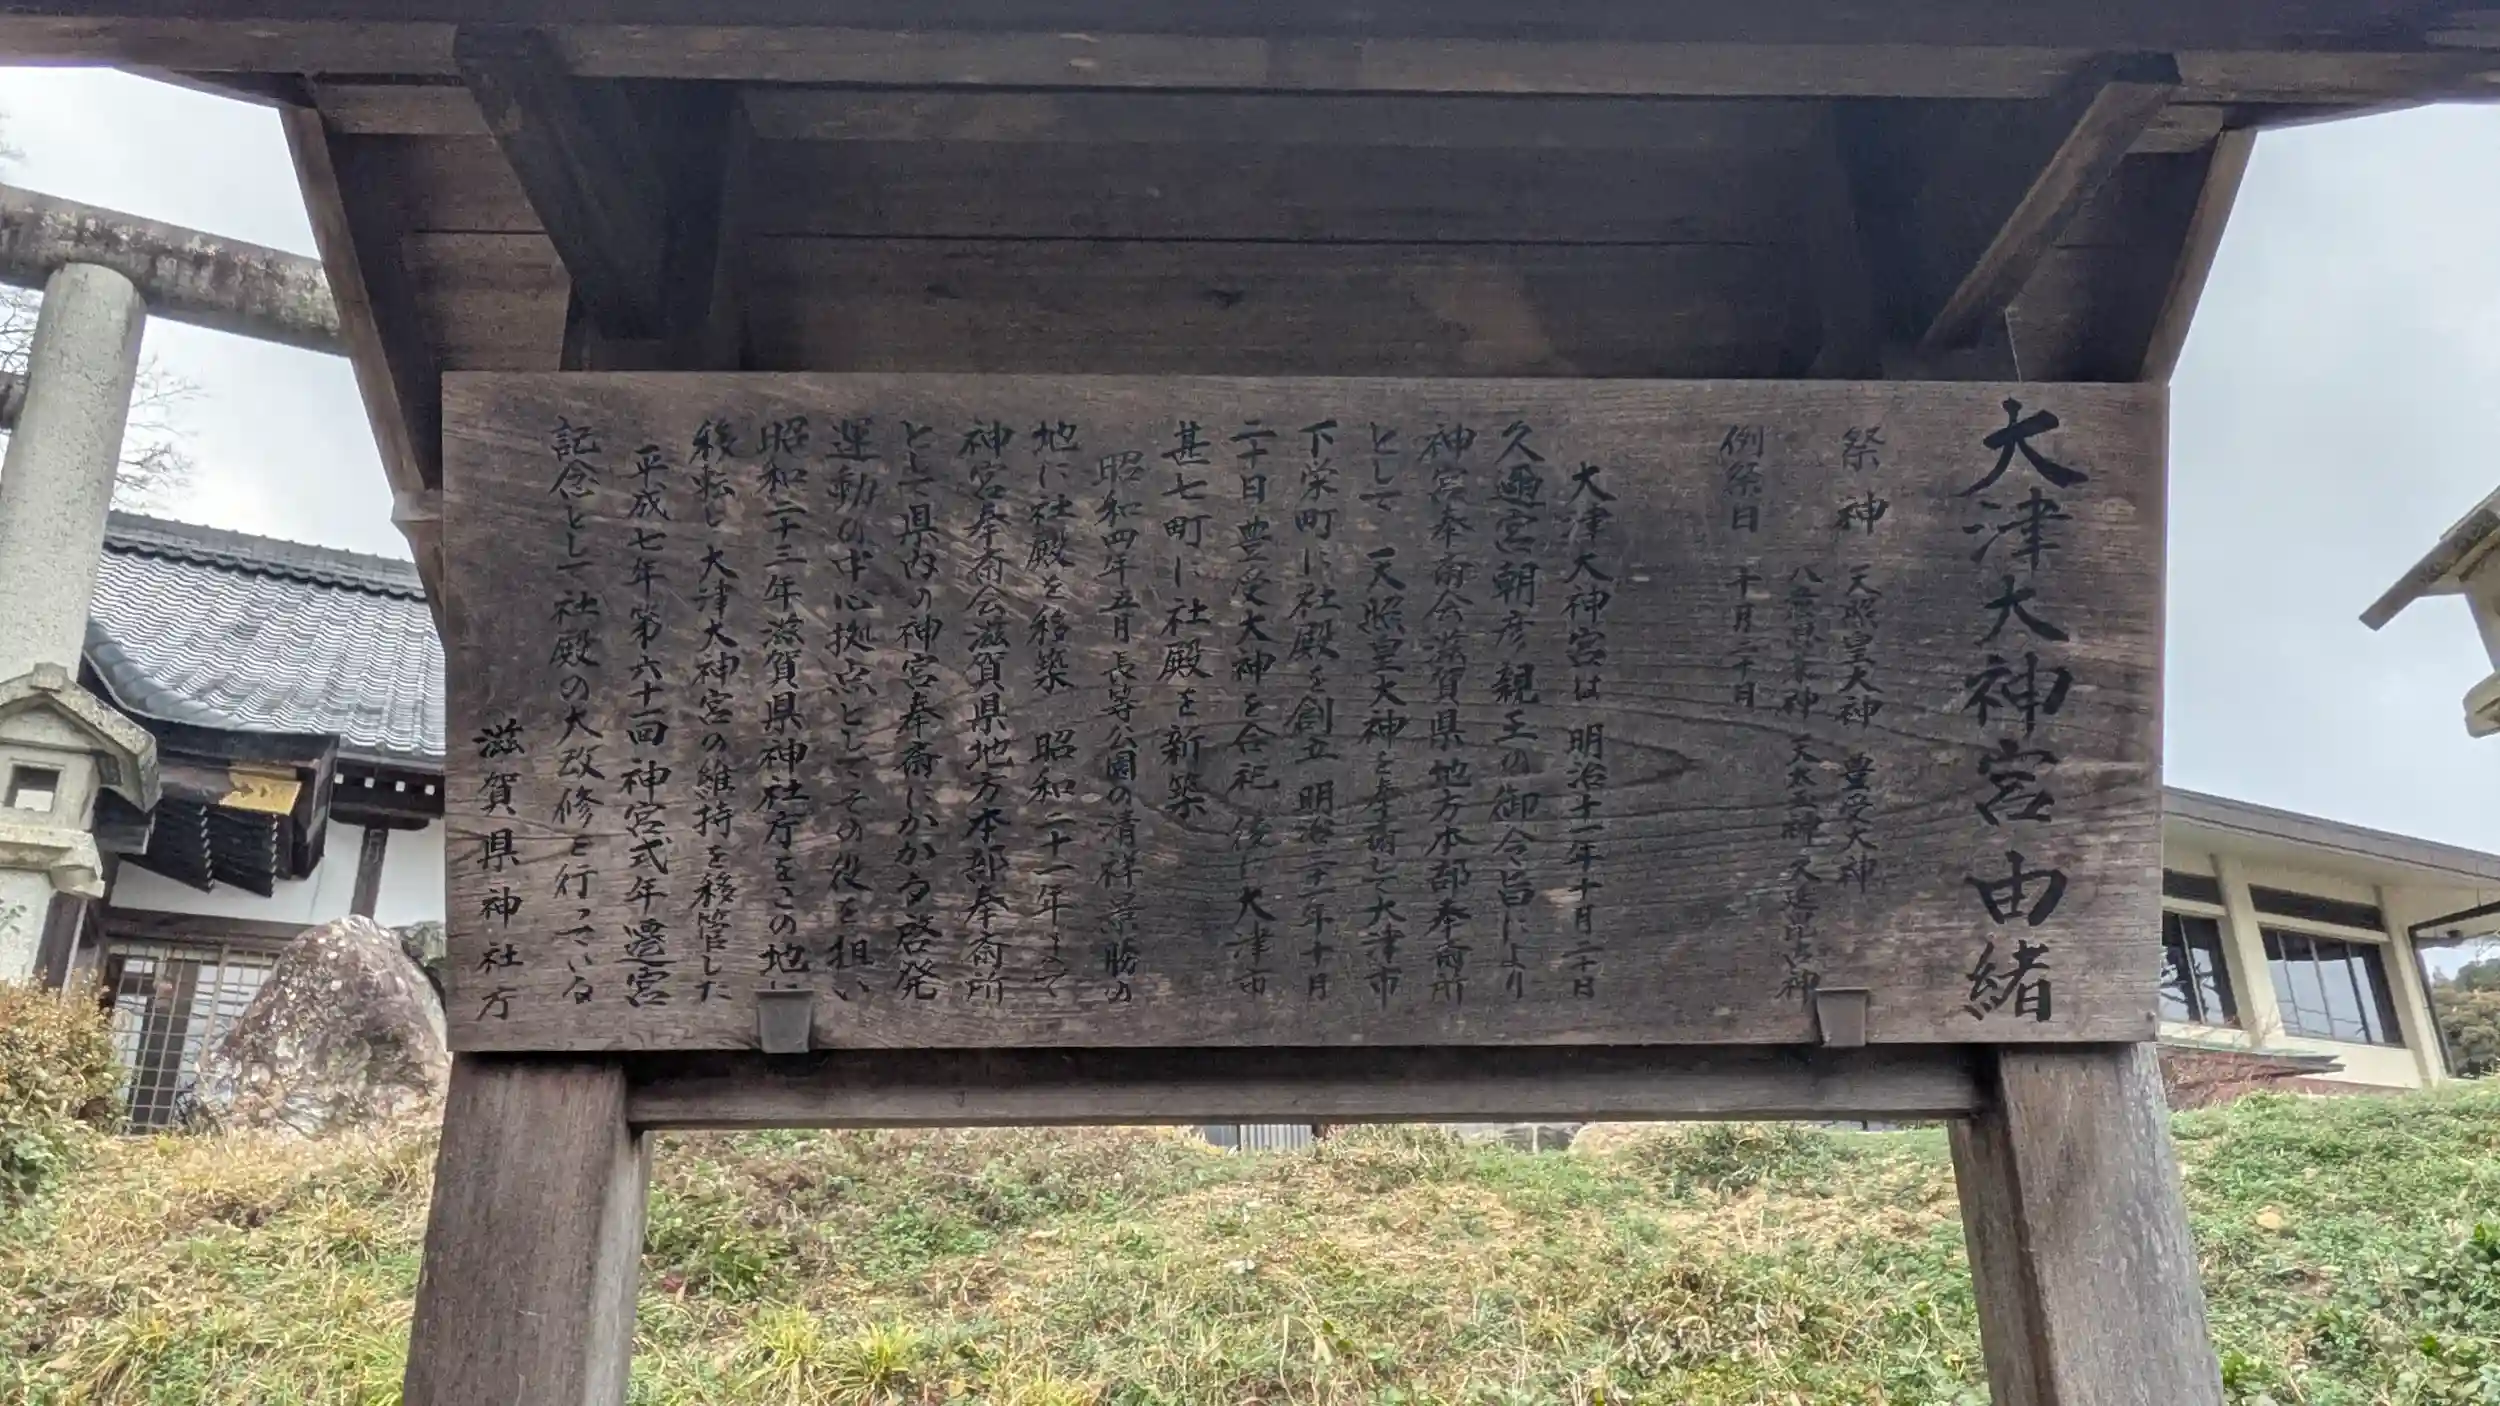 大津大神宮由緒
祭神 天照皇大神 豊受大神
八意思兼神 天太玉神 久延毘古神
例祭日 十月二十日
大津大神宮は 明治十一年十月二十日
久邇宮朝彦親王の御令旨により
神宮奉斎会滋賀県地方本部奉斎所
として 天照皇大神を奉斎して大津市
下栄町に社殿を創立 明治二十二年十月
二十日豊受大神を合祀 後に大津市
甚七町に社殿を新築
昭和四年五月長等公園の清祥景勝の
地に社殿を移築 昭和二十一年まで
神宮奉斎会滋賀県地方本部奉斎所
として県内の神宮奉斎にかかる啓発
運動の中心拠点としてその役を担い
昭和二十三年滋賀県神社庁をこの地に
移転し大津大神宮の維持を移管した
平成七年第六十一回神宮式年遷宮
記念として社殿の大改修を行っている
滋賀県神社庁